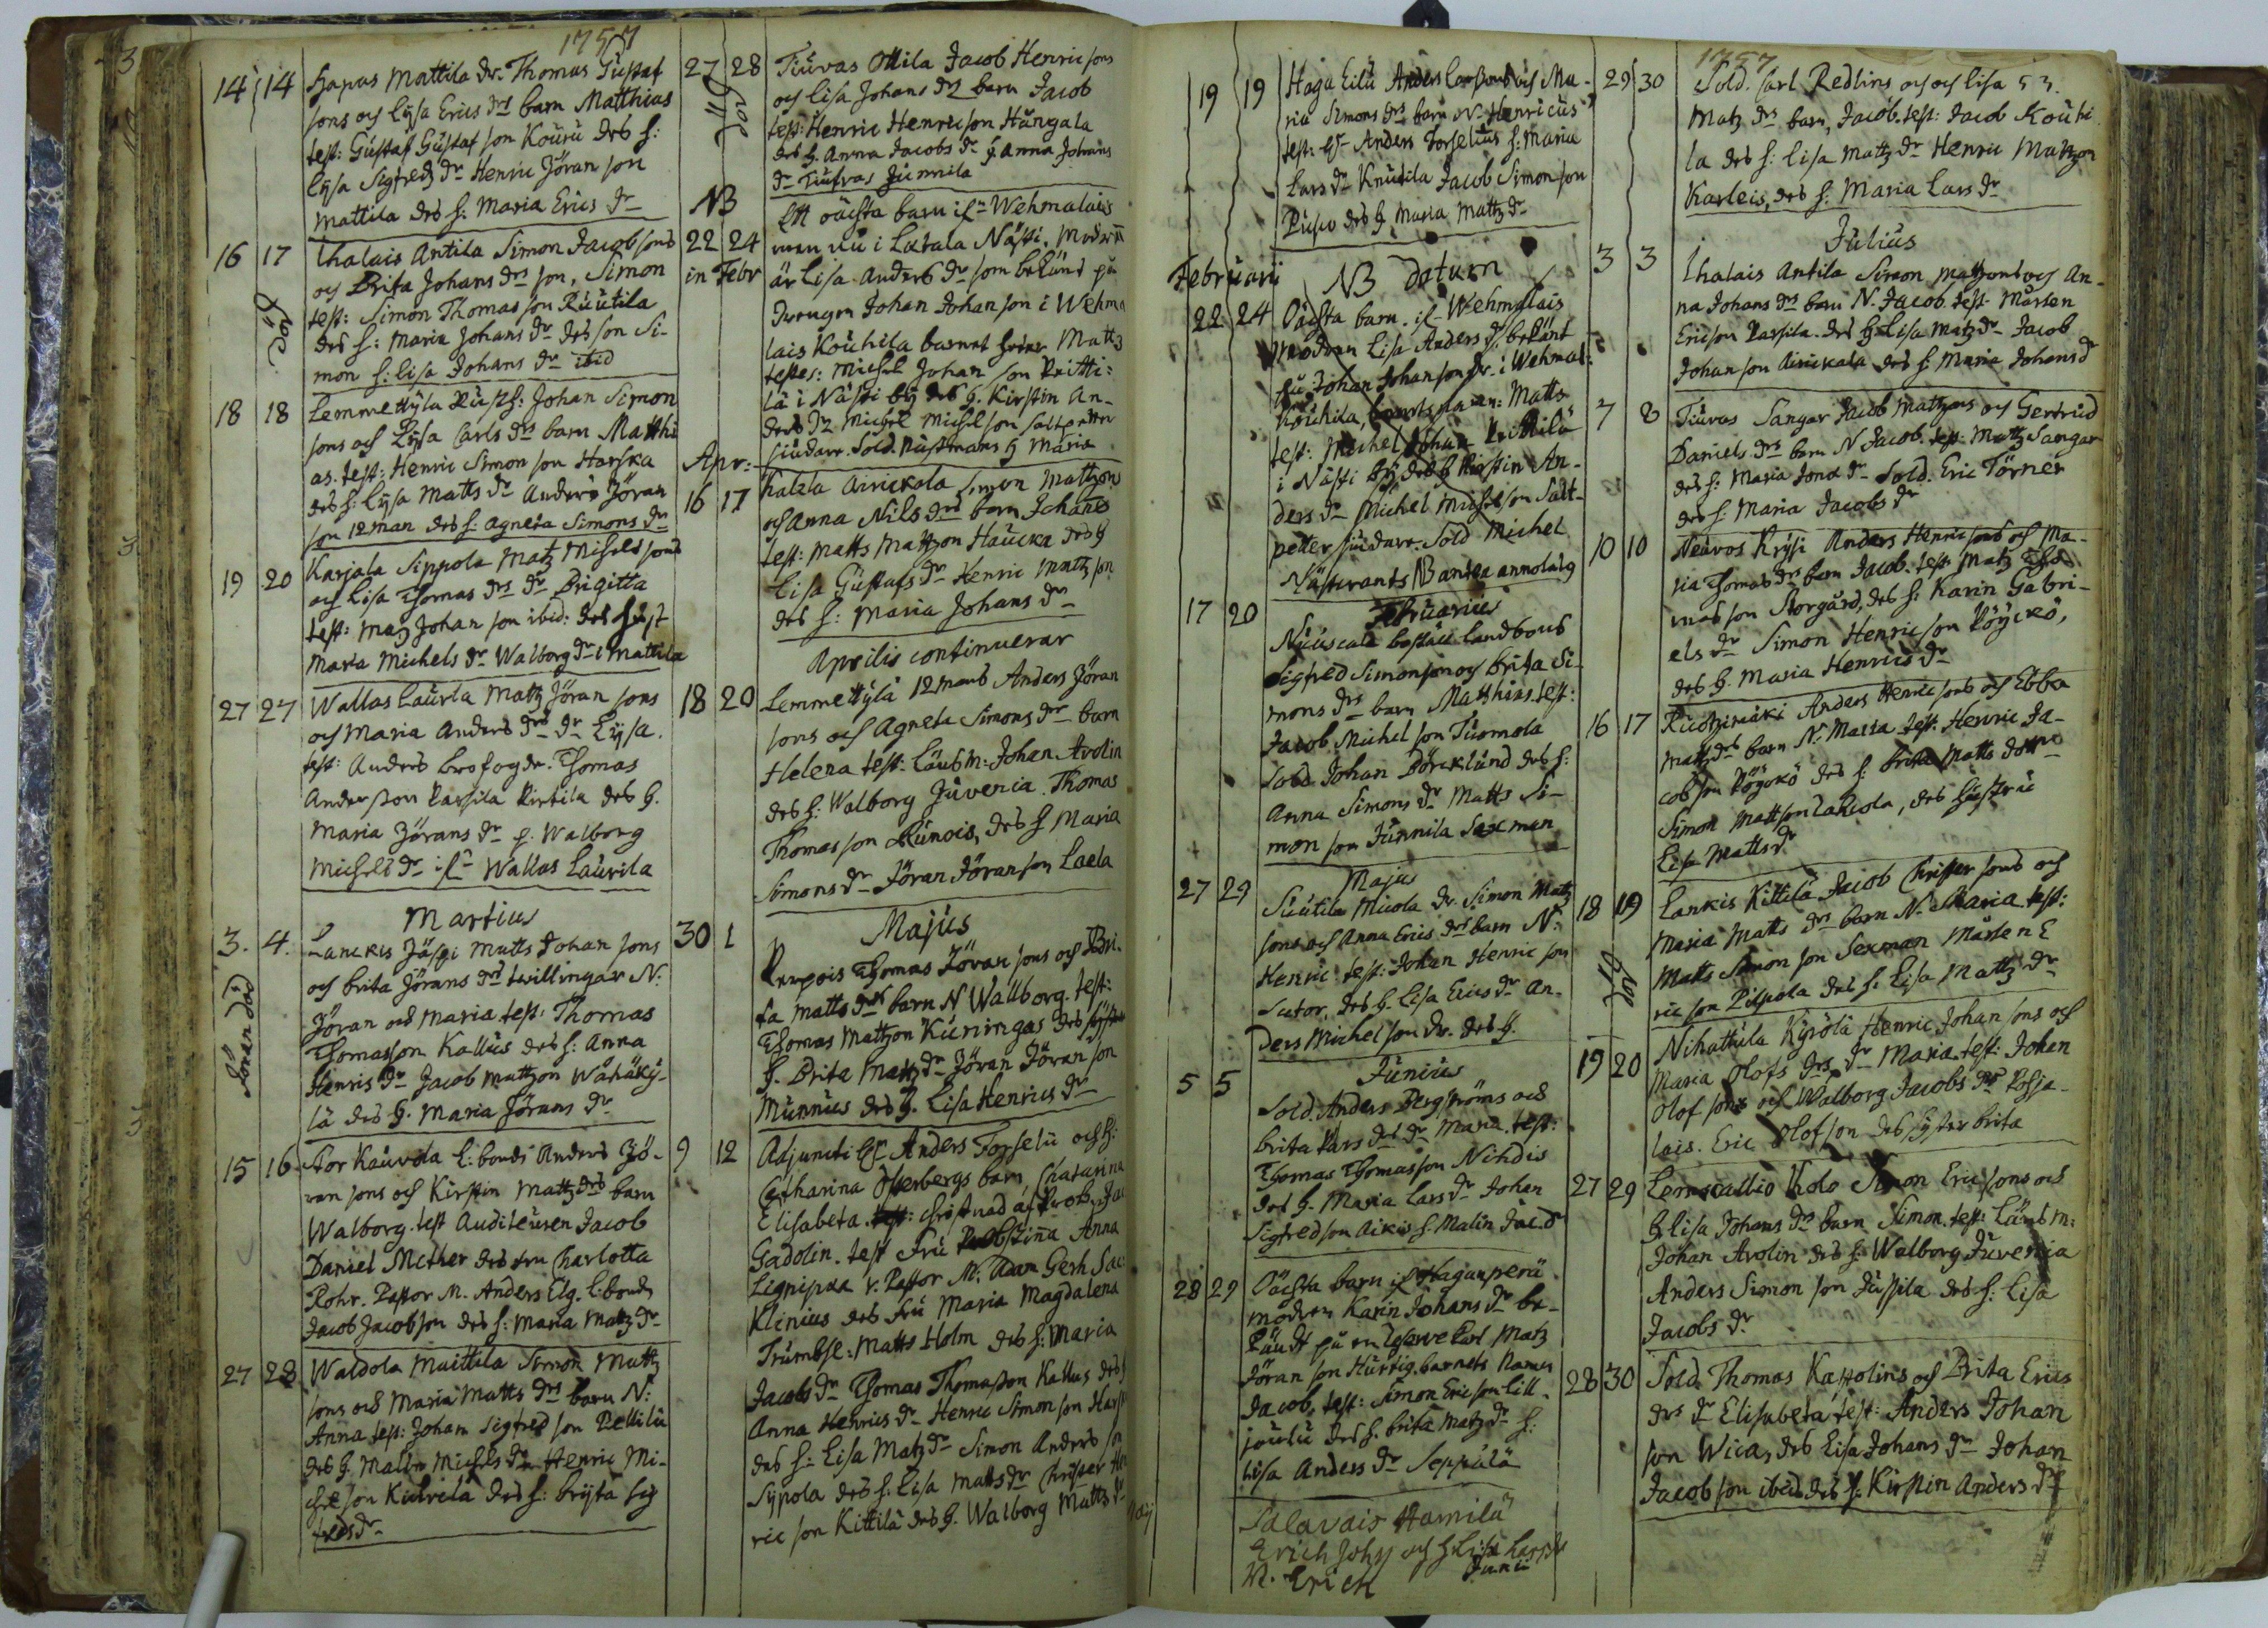 1757
14 14 Hapas Mattila dr. Thomas Gustaf
sons och Lysa Erics drs barn Matthias
test: Gustaf Gustaf son Kouru des h:
Lysa Sigfreds dr Henric Jöran son
Mattila des h: Maria Erics dr
16 17 Ihalais Antila Simon Jacob sons
och Brita Johans drs son, Simon
död
test: Simon Thomas son Ruutila
des h: Maria Johans dr des son Si-
mon h: Lisa Johans dr ibid
18 18 Lemmettyla Johan Simon
sons och Lysa Carls drs barn Matthi
as. test: Henric Simon son Harska
des h: Lysa Matts dr Anders Jöran
son 12 man des h: Agneta Simons dr
19 20 Karjala Sippola Matz Michels sons
och Lisa Thomas drs dr Brigitta
test: Maz Johan son ibid: des hust
Maria Michels dr Walborg dr i Mattila
27 27 Wallas Laurla Mattz Jöran sons
och Maria Anders drs dr Lysa.
test: Anders brofogde. Thomas
Andersson Passila Pietila des h.
Maria Jörans dr h. Walborg
Michels dr if Wallas Laurila
Martius
3. 4. Lanckis Jäspi Matts Johan sons
och Brita Jörans drs twillingar N:
Jöran död
Jöran och Maria test: Thomas
Thomasson Kallus des h: Anna
Henrics dr Jacob Mattzon Wähäky-
lä des h. Maria Jörans dr
15 16 Stor Kauvola l:bonde Anders Jö-
ran sons och Kirstin Mattz drs barn
Walborg. test Auditeuren Jacob
Daniel Mether des fru Charlotta
Rohr. Pastor M. Anders Elg. l:bonde
Jacob Jacobson des h: Maria Matz dr
27 28 Waldola Maittila Simon Mattz
sons och Maria Matts drs barn N:
Anna test: Johan Sigfred son Pellilä
des h. Malin Michels dr Henric Mi-
chel son Kulvela des h: Bryta Sig
freds dr
27 28 Tiuvas Ollila Jacob Henric sons
och Lisa Johans dr barn Jacob
död
test: Henric Henricson Hungala
des h. Anna Jacobs dr h. Anna Johans
dr Tiufvas Junnila
NB
Ett oächta barn if Wehmalais
22 24 men nu i Latala Nästi, Modern
in Febr är Lisa Anders dr som bekänd på
drengen Johan Johanson i Wehma
lais Kouhila barnet heter Matts
testes: Michel Johan son Pritti:
lä i Nästi by des h. Kirstin An-
ders dr Michel Michel son Saltpetter
siudare. Sold. Rustmans h Maria
Apr:
16 17 Airickala Simon Mattzons
och Anna Nils drs barn Johans
test: Matts Mattzon Haucka des h
Lisa Gustafs dr Henric Mattz son
des h: Maria Johans dr
Aprilis continuerar
18 20 Lemmettylä 12 mans Anders Jöran
sons och Agneta Simons drs barn
Helena test: Länsm: Johan Avolin
des h: Walborg Juvenia. Thomas
Thomas son Runois, des h Maria
Simons dr Jöran Jöranson Laela
Majus
30 1 Thomas Jöran sons och Bri-
ta Matts drs barn N Wallborg. test:
Thomas Mattzon Kuningas des syster
h. Brita Mattz dr Jöran Jöran son
Munnus des h. Lisa Henrics dr
9 12 Adjuncti Hr Anders Forselii och h:
Catharina Österbergs barn, Chatarina
Elisabeta. christnad af Prob: Jac
Gadolin. test Fru Probstinna Anna
Lignipaea v. Pastor M: Adam Gerh Sac
Klinius des Fru Maria Magdalena
Trumbsl: Matts Holm des h: Maria
Jacobs dr Thomas Thomasson Kallus des h
Anna Henrics dr Henric Simon son Harsk
des h: Lisa Matz dr Simon Anders son
Sypola des h. Lisa Matts dr Christer Hen
ric son Kittilä des h. Walborg Matts dr
19 19 Haga Eilu Anders Larssons och Ma-
ria Simons drs barn N: Henricus
test: Hr Anders Forselius h: Maria
Lars dr Knutila Jacob Simon son
Pusu des h. Maria Mattz dr
Februarii NB Datum
22 24 Oächta barn. if Wehmalais
Modren Lisa Anders dr bekänt
på Johan Johanson dr. i Wehmal:
Kouhila, barnets namn: Matts
test: Michel Johan Prittilä
i Nästi by des h Kirstin An-
ders dr Michel Michelson Salt-
petter siudare. Sold Michel
NB antea annotatg
Februarius
17 20 Niuscala boställ landbons
Sigfred Simonson och Brita Si-
mons drs barn Matthias test:
Jacob Michel son Tuomola
Sold Johan Börcklund des h:
Anna Simons dr Matts Si-
mon son Junnila Sexman
Majus
27 29 Suutila Micola dr. Simon Matz
sons och Anna Erics drs barn N:
Henric test: Johan Henric son
Sutor, des h. Lisa Erics dr An-
ders Michel son dr. des h.
Junius
5 5 Sold. Anders Bergströms och
Brita Lars drs dr Maria. test:
Thomas Thomasson Nihdis
des h. Maria Lars dr Johan
Sigfredson Aikis h. Malin Jac. dr
28 29 Oächta barn if Haganperä
modren Karin Johans dr be-
kändt på en Matz
Jöran son Hurtig. barnets Namn
Jacob, test: Simon Ericson Lill-
joulu des h. Brita Matz dr h:
Lisa Anders dr Seppälä
Palavais Hamilä
Erich Johs och h Lisa
N. Erich Junii
1757
29 30 Sold. Carl Redlins och och Lisa
Matz drs barn, Jacob. test: Jacob Kouhi
la des h: Lisa Mattz dr Henric Mattzon
Karleis, des h: Maria Lars dr
Julius
3 3 Ihalais Antila Simon Mattzons och An-
na Johans drs barn N. Jacob test Mårten
Ericson Passila des h Lisa Matz dr Jacob
Johan son Airickala des h. Maria Johans dr
7 8 Tiuvas Sangar Jacob Mattzons och Gertrud
Daniels drs barn N Jacob. test: Mattz Sangar
des h: Maria Jona dr Sold. Eric Törner
des h. Maria Jacobs dr
10 10 Neuvos Krysi Anders Henricsons och Ma-
ria Thomas drs barn Jacob. test Matz Tho-
mas son Storgård, des h: Karin Gabri-
els dr Simon Henricson Pöyckö,
des h. Maria Henrics dr
16 17 Anders Henricsons och Ebba
Matts drs barn N: Maria test. Henric Ja-
cobson Pöyckö des h: Brita Matts dotter
Simon Mattson Lahdola, des hustru
Lisa Matts dr
18 19 Lankis Kittilä Jacob Christer sons och
Maria Matts drs barn N. Maria test:
död
Matts Simon son Sexman Mårten E
ric son Pilpola des h. Lisa Mattz dr
19 20 Nihattula Kyrölä Henric Johan sons och
Maria Olofs drs dr Maria. test: Johan
Olof sons och Walborg Jacobs dr Pohja-
lais. Eric Olofson des syster Brita
27 29 Kolo Simon Eric sons och
h Lisa Johans dr barn Simon. test: Länsm:
Johan Avolin des h: Walborg Juvenia
Anders Simon son Jussila des h: Lisa
Jacobs dr.
28 30 Sold Thomas Kastolins och Brita Erics
drs dr Elisabeta test: Anders Johan
son Wica, des Lisa Johans dr Johan
Jacob son ibid des h. Kirstin Anders dr